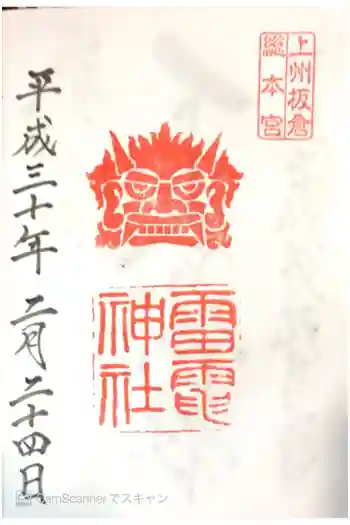 上州板倉
總本宮
雷電
神社
平成三十年 二月二十四日
CamScannerでスキャン